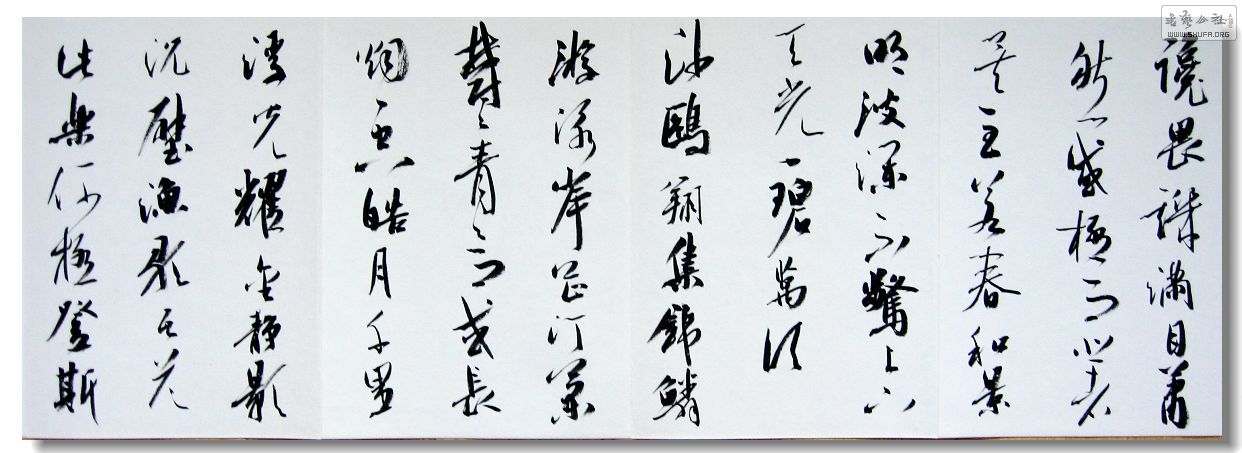 讒畏譏滿目蕭
然感極而悲者
矣至若春和景
明波瀾不驚上下
天光一碧萬頃
沙鷗翔集錦鱗
游泳岸芷汀蘭
鬱〻青〻而或長
烟一空皓月千里
浮光耀金靜影
沉璧漁歌互答
此樂何極登斯
書藝公社
WWW.SHUFA.ORG